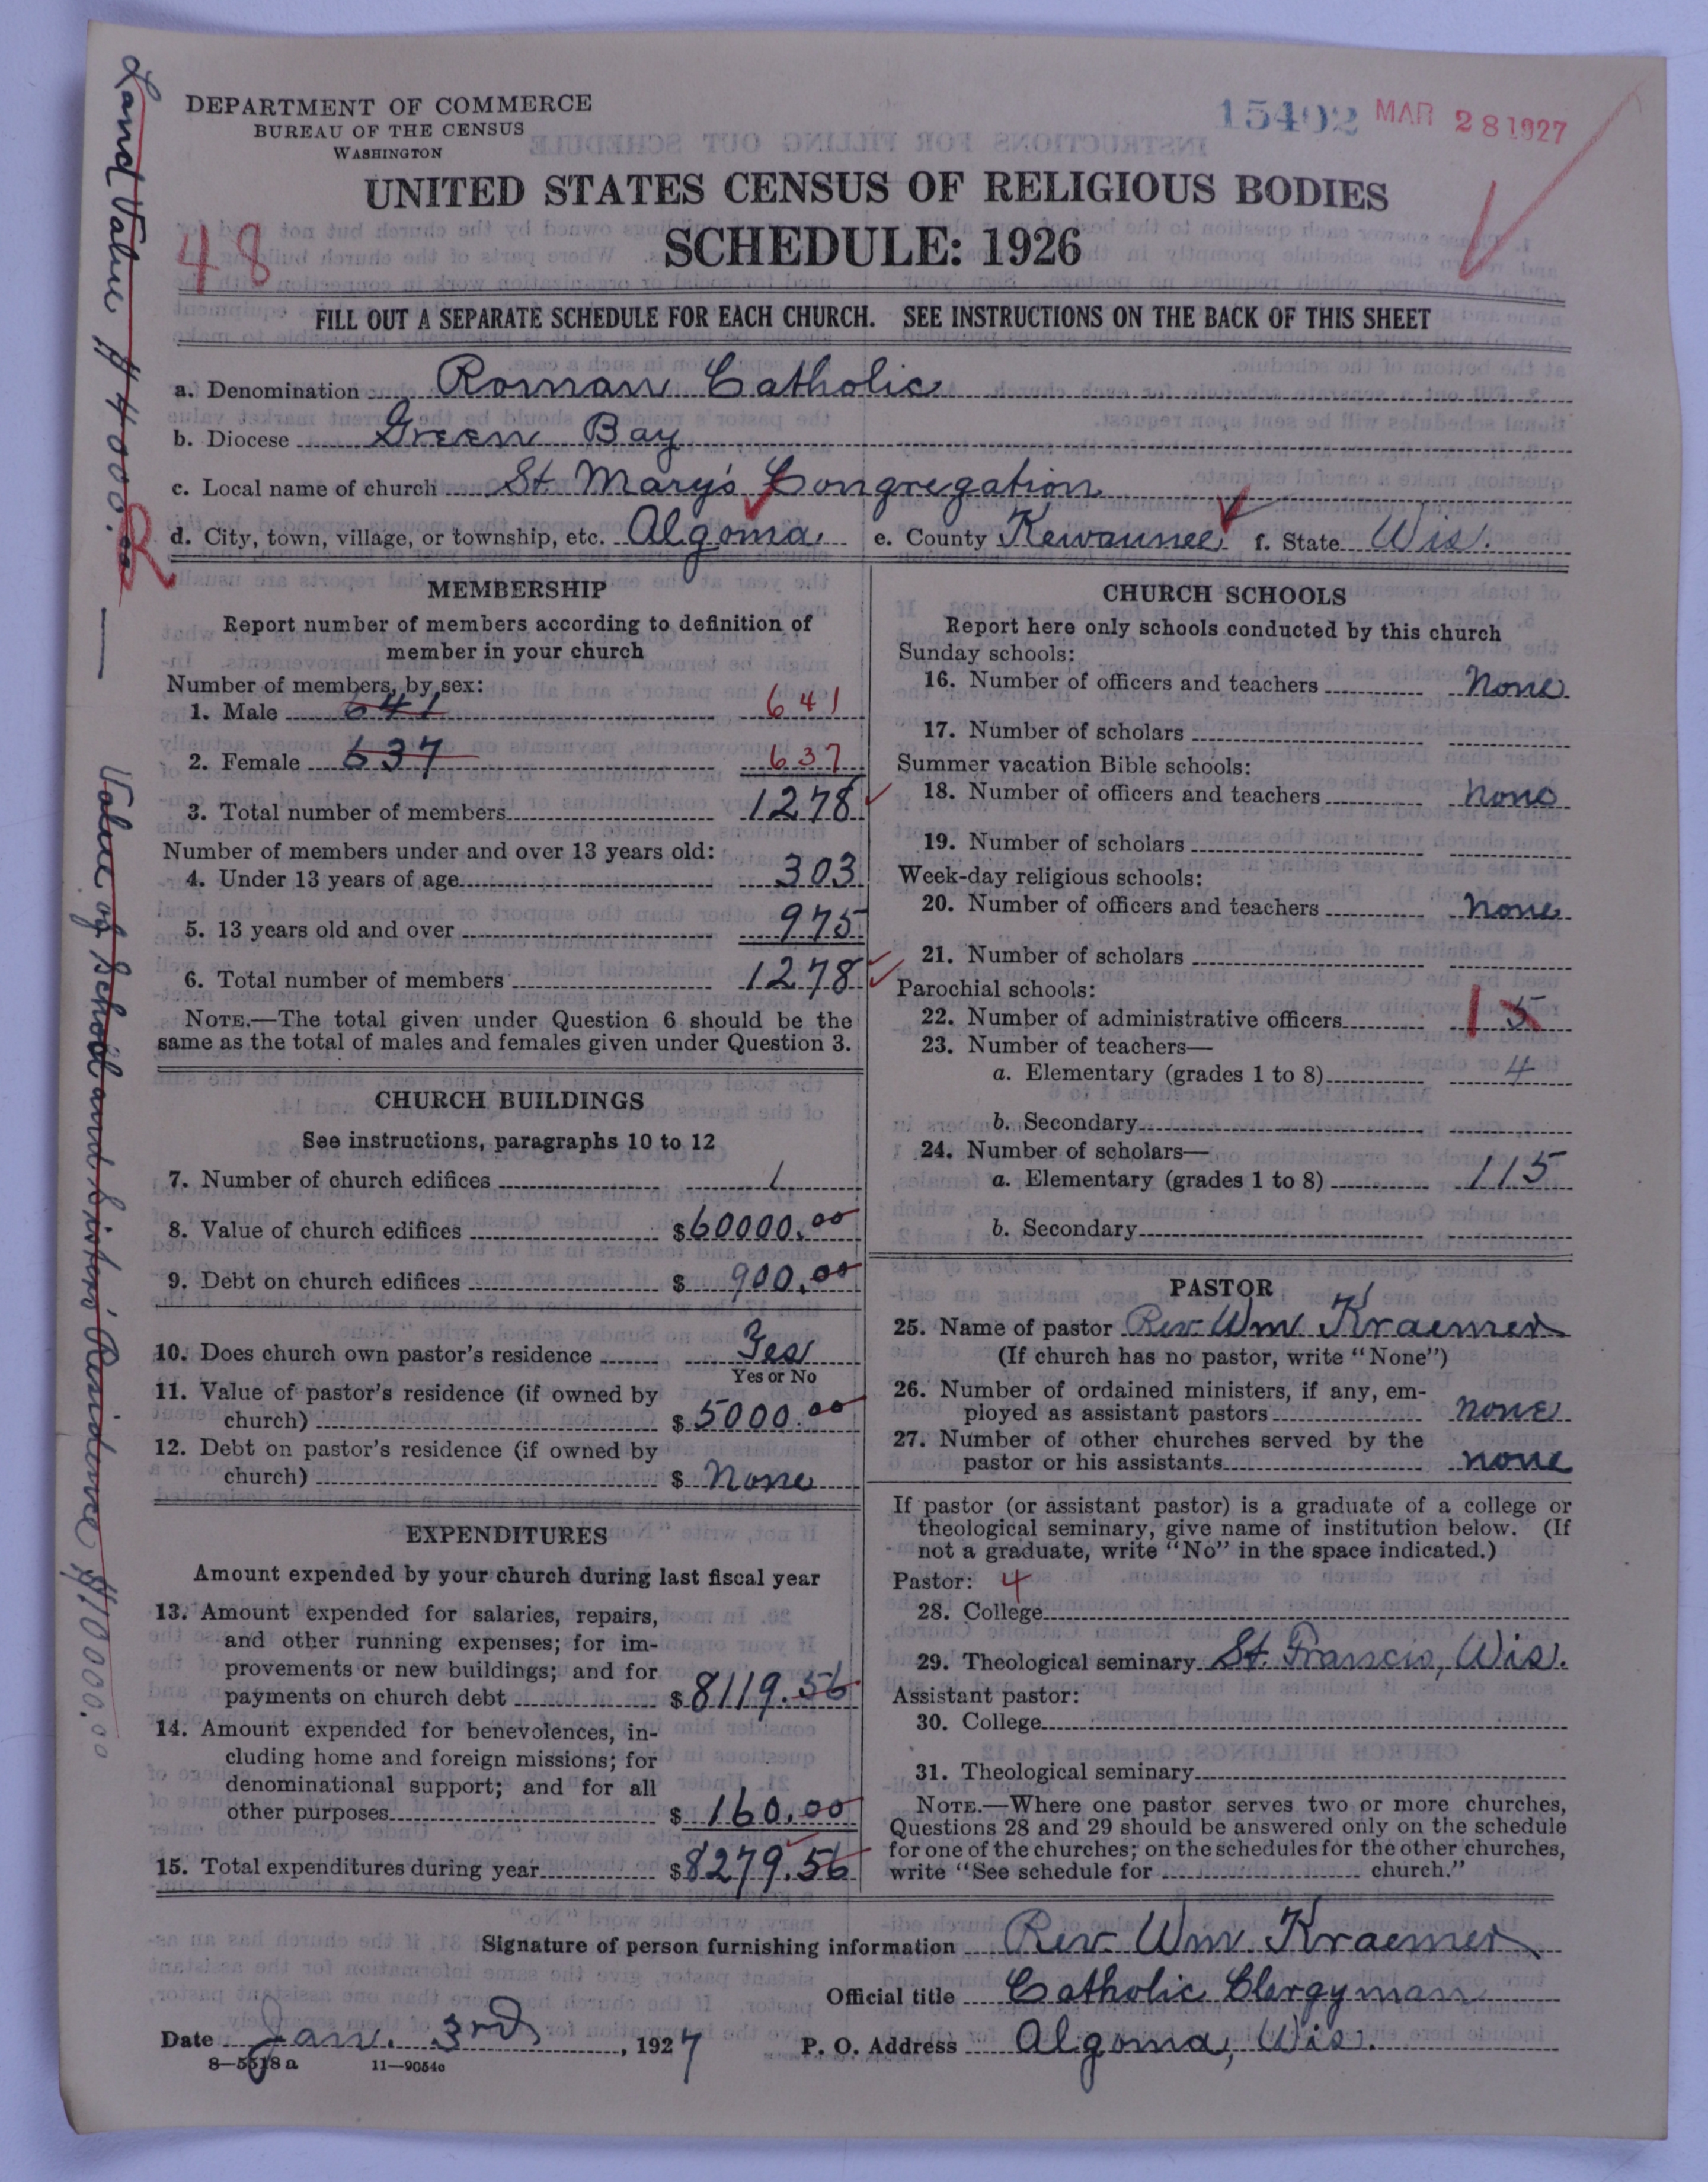 DEPARTMENT OF COMMERCE
BUREAU OF THE CENSUS
WASHINGTON
15402 MAR 28 1927
UNITED STATES CENSUS OF RELIGIOUS BODIES
SCHEDULE: 1926
48
FILL OUT A SEPARATE SCHEDULE FOR EACH CHURCH. SEE INSTRUCTIONS ON THE BACK OF THIS SHEET
a. Denomination Roman Catholic
b. Diocese Green Bay
c. Local name of church St. Mary's Congregation
d. City, town, village, or township, etc. Algoma e. County Kewaunee f. State Wis.
Land Value $4000.00
Value of School and Sisters' Residence $10000.00
MEMBERSHIP
Report number of members according to definition of
member in your church
Number of members, by sex:
1. Male 641 641
2. Female 637 637
3. Total number of members 1278
Number of members under and over 13 years old:
4. Under 13 years of age 303
5. 13 years old and over 975
6. Total number of members 1278
NOTE.—The total given under Question 6 should be the
same as the total of males and females given under Question 3.
CHURCH BUILDINGS
See instructions, paragraphs 10 to 12
7. Number of church edifices 1
8. Value of church edifices $60000.00
9. Debt on church edifices $900.00
10. Does church own pastor's residence Yes
Yes or No
11. Value of pastor's residence (if owned by
church) $5000.00
12. Debt on pastor's residence (if owned by
church) $ None
EXPENDITURES
Amount expended by your church during last fiscal year
13. Amount expended for salaries, repairs,
and other running expenses; for im-
provements or new buildings; and for
payments on church debt $8119.56
14. Amount expended for benevolences, in-
cluding home and foreign missions; for
denominational support; and for all
other purposes $160.00
15. Total expenditures during year $8279.56
CHURCH SCHOOLS
Report here only schools conducted by this church
Sunday schools:
16. Number of officers and teachers None
17. Number of scholars
Summer vacation Bible schools:
18. Number of officers and teachers None
19. Number of scholars
Week-day religious schools:
20. Number of officers and teachers None
21. Number of scholars
Parochial schools:
22. Number of administrative officers 1 5
23. Number of teachers—
a. Elementary (grades 1 to 8) 4
b. Secondary
24. Number of scholars—
a. Elementary (grades 1 to 8) 115
b. Secondary
PASTOR
25. Name of pastor Rev. Wm Kraemer
(If church has no pastor, write "None")
26. Number of ordained ministers, if any, em-
ployed as assistant pastors none
27. Number of other churches served by the
pastor or his assistants none
If pastor (or assistant pastor) is a graduate of a college or
theological seminary, give name of institution below. (If
not a graduate, write "No" in the space indicated.)
Pastor: 4
28. College
29. Theological seminary St. Francis, Wis.
Assistant pastor:
30. College
31. Theological seminary
NOTE.—Where one pastor serves two or more churches,
Questions 28 and 29 should be answered only on the schedule
for one of the churches; on the schedules for the other churches,
write "See schedule for church."
Signature of person furnishing information Rev. Wm. Kraemer
Official title Catholic Clergyman
Date Jan. 3rd, 1927 P. O. Address Algoma, Wis.
8—5518 a 11—9054c